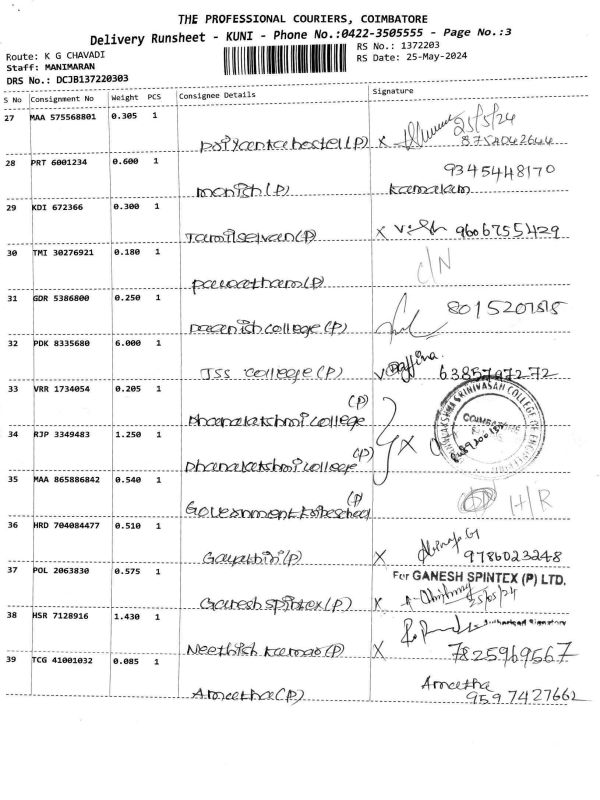 THE PROFESSIONAL COURIERS, COIMBATORE
Delivery Runsheet - KUNI - Phone No.:0422-3505555 - Page No.:3
Route: K G CHAVADI
RS No.: 1372203
Staff: MANIMARAN
RS Date: 25-May-2024
DRS No.: DCJB137220303
S No Consignment No Weight PCS Consignee Details Signature
27 MAA 575568801 0.305 1
25/5/24
Priyanka hostel (P) X 8754042644
28 PRT 6001234 0.600 1 9345448170
monish (P) Kamalam
29 KDI 672366 0.300 1
Tamilselvan (P) X 9606755429
30 TMI 30276921 0.180 1 C/N
31 GDR 5386800 0.250 1 8015207515
college (P)
32 PDK 8335680 6.000 1
JSS college (P) 6385797272
33 VRR 1734054 0.205 1 (P)
Dhanalakshmi college
34 RJP 3349483 1.250 1 (P) X
Dhanalakshmi college
35 MAA 865886842 0.540 1 (P) H/R
Government
36 HRD 704084477 0.510 1
Gayathiri (P) X 9786023248
37 POL 2063830 0.575 1 For GANESH SPINTEX (P) LTD.
Ganesh Spintex (P) X 25/05/24
38 HSR 7128916 1.430 1 Authorised Signatory
Neethish Kumar (P) X 7825969567
39 TCG 41001032 0.085 1 Ameetha
Ameetha (P) 9597427662